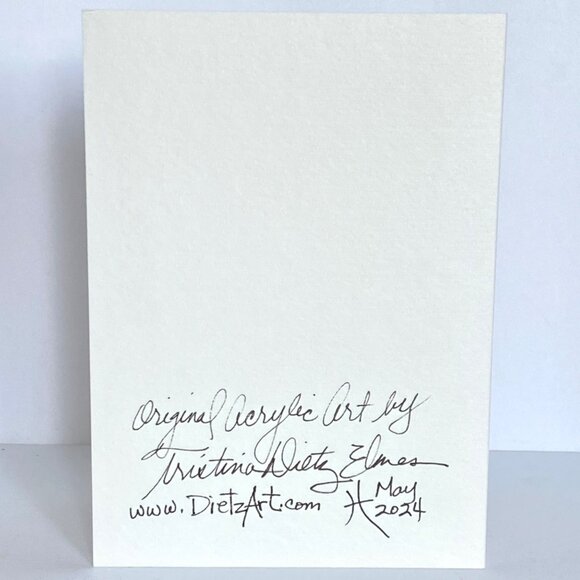 Original Acrylic Art by
Tristina Dietz Elmes
www.DietzArt.com May
2024